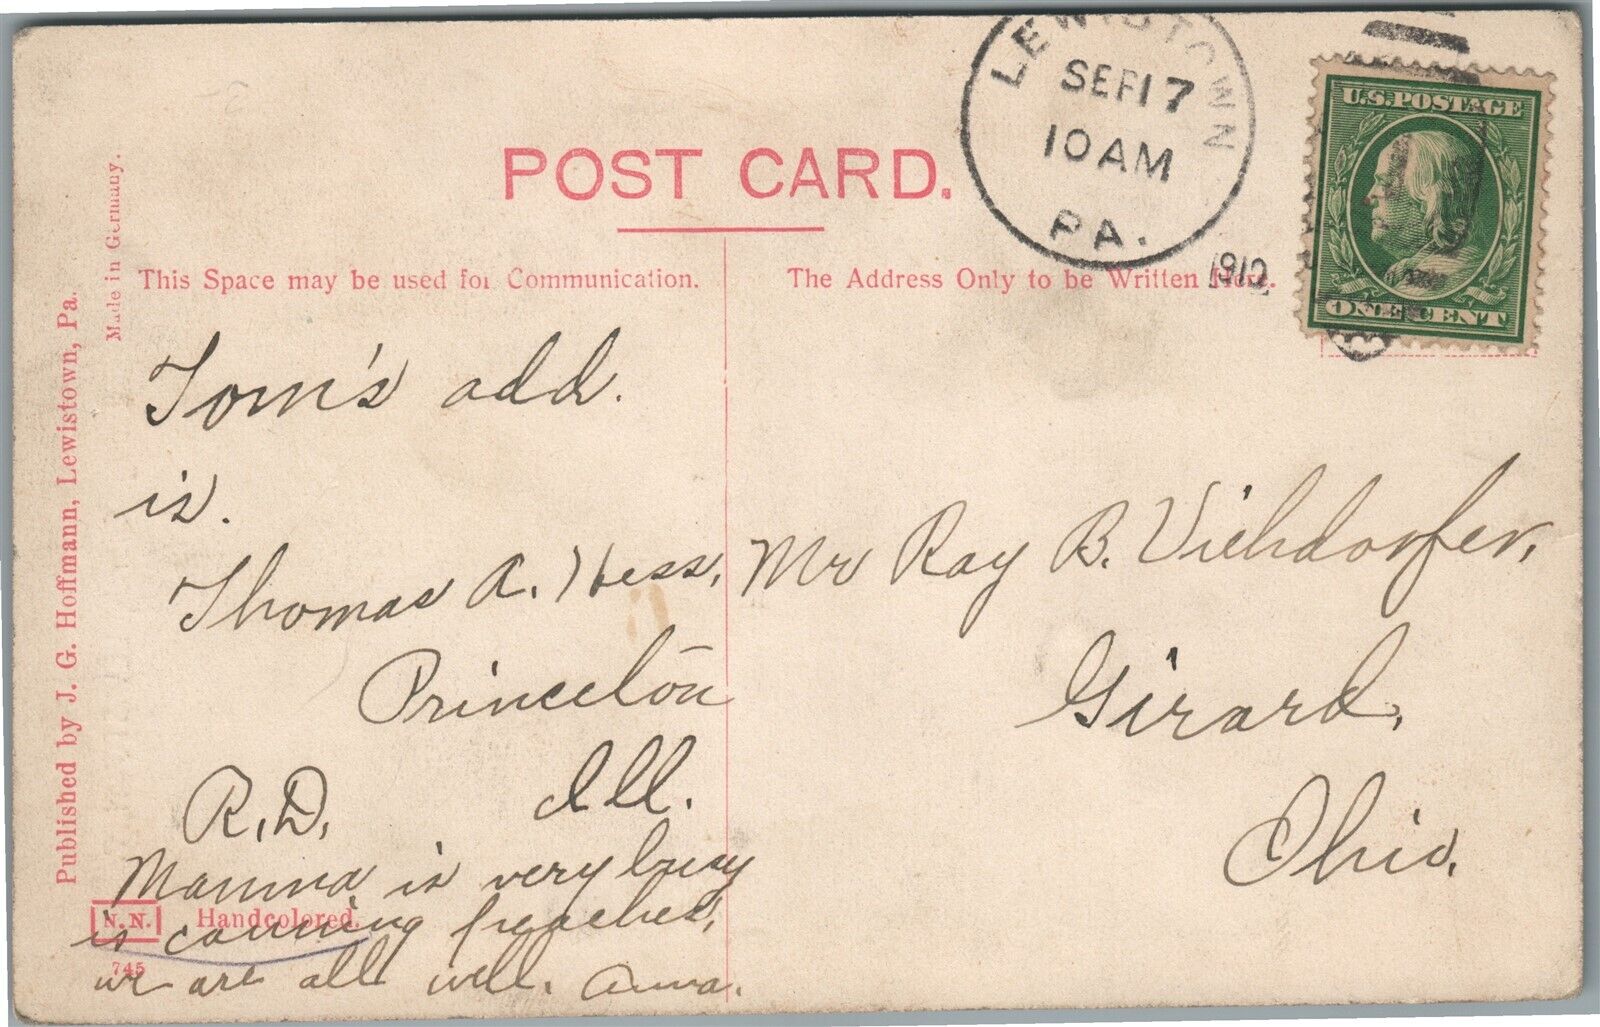 LEWISTOWN
SEP 17
10 AM
PA.
1912
U.S. POSTAGE
ONE CENT
POST CARD.
This Space may be used for Communication.
The Address Only to be Written Here.
Made in Germany.
Published by J. G. Hoffmann, Lewistown, Pa.
Tom's add.
is.
Thomas A. Hess,
Princeton
R.D. Ill.
Mamma is very busy
is canning peaches,
we are all well. Anna.
N.N. Handcolored.
745
Mr Ray B. Viehdorfer,
Girard,
Ohio.